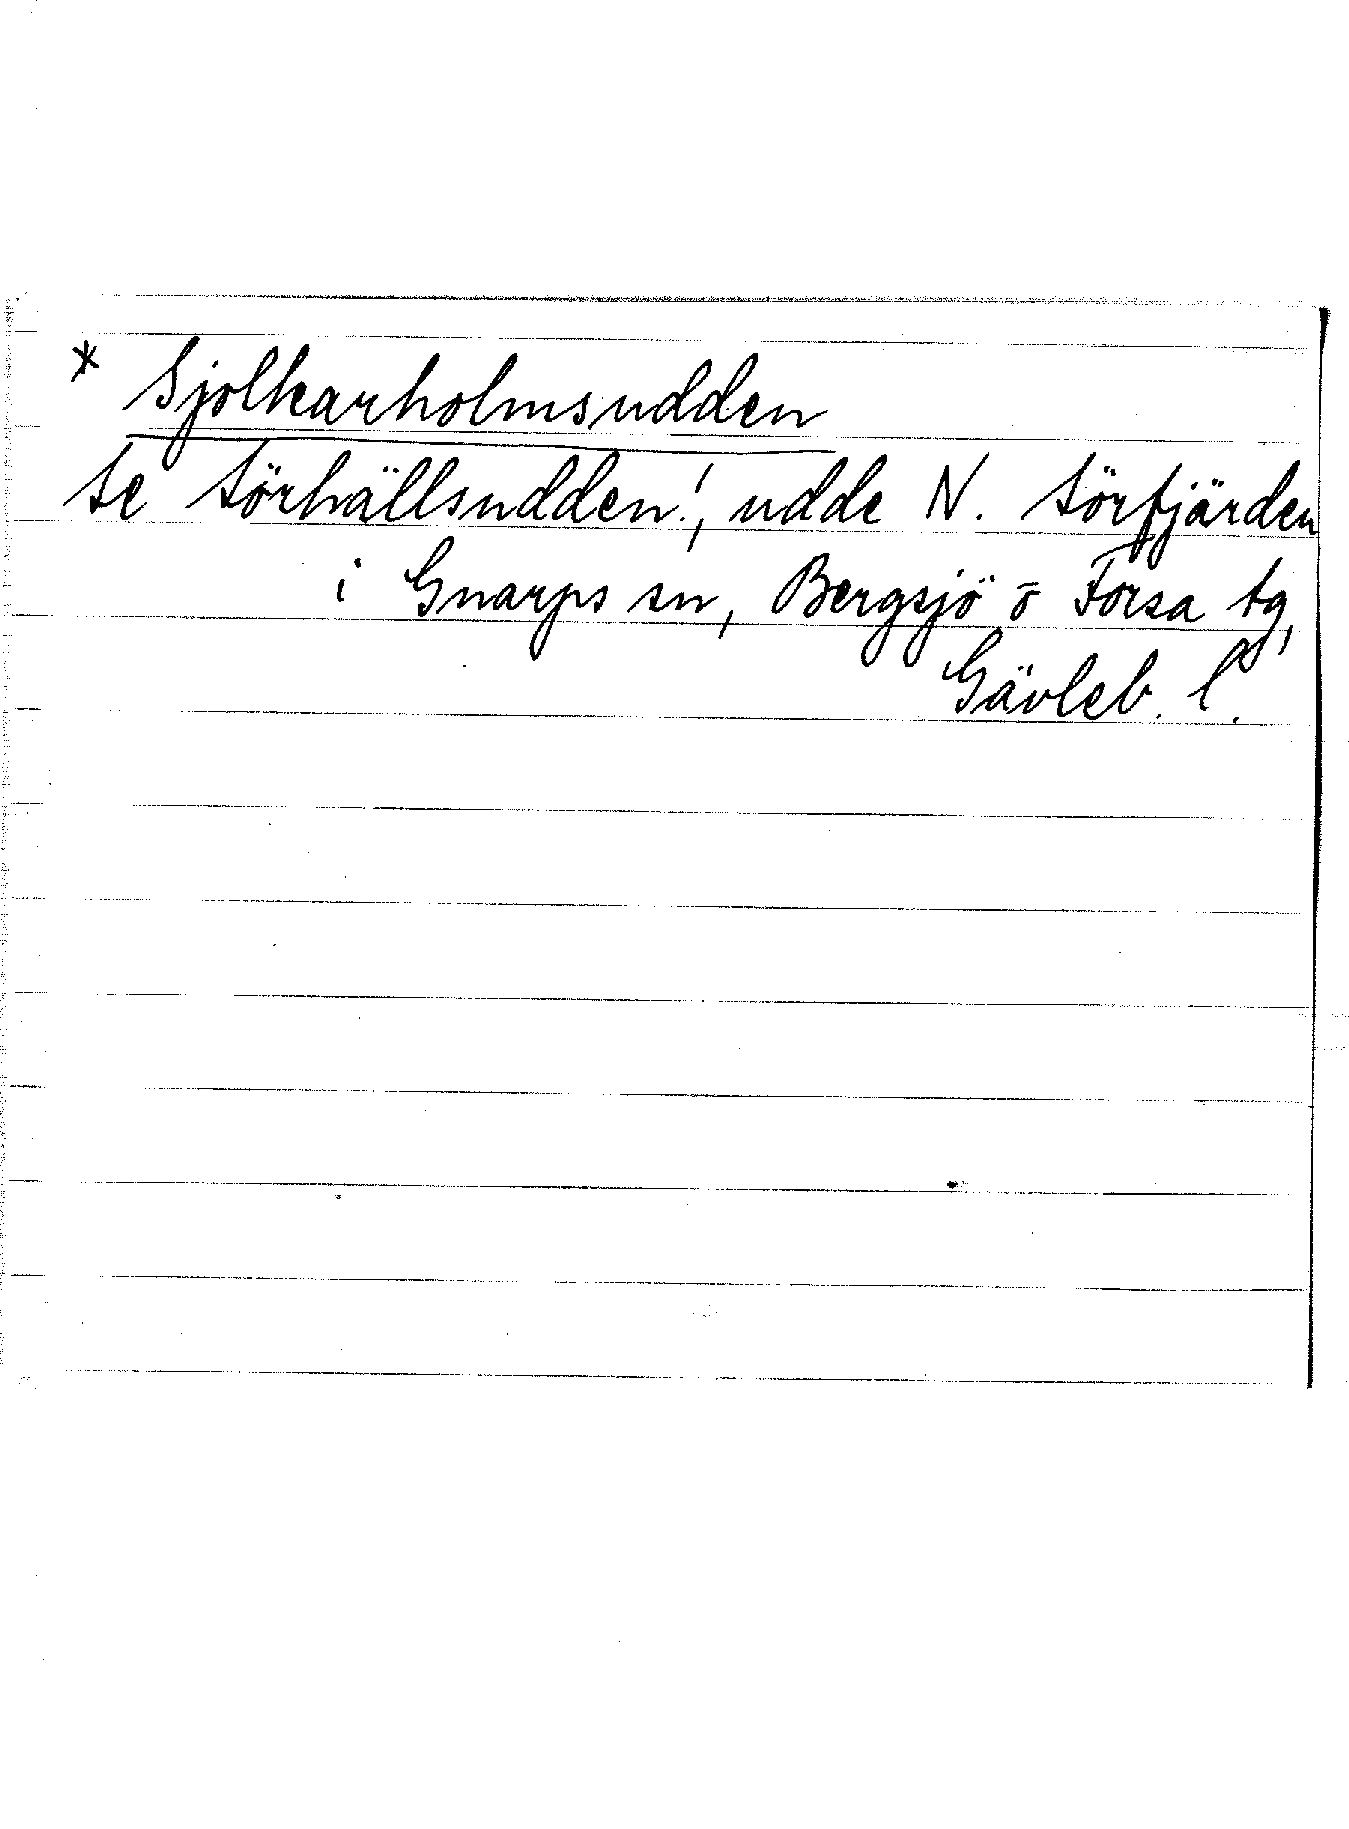 * Sjolkarholmsudden
Se Sörhällsudden!, udde N. Sörfjärden
i Gnarps sn, Bergsjö o Forsa tg,
Gävleb. l.